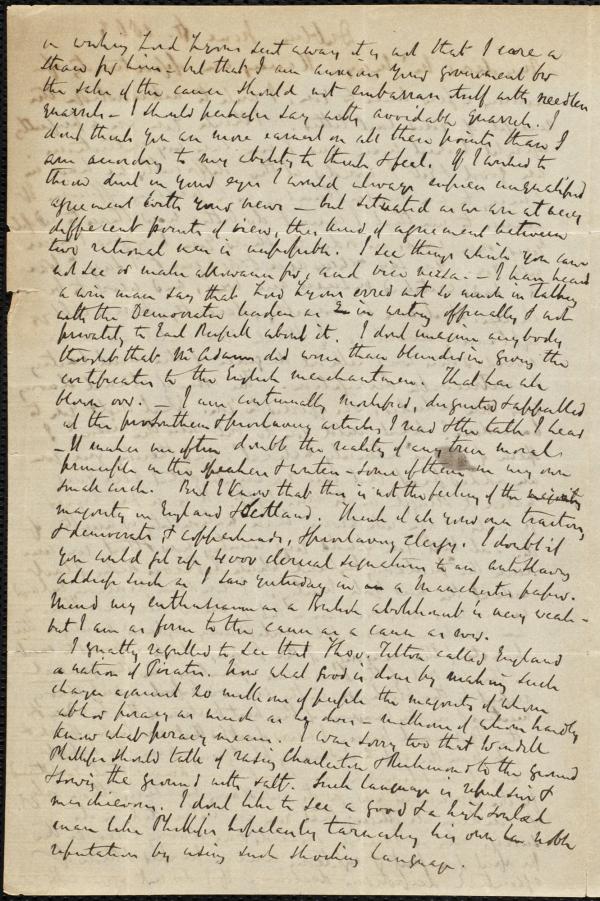 in wishing Lord Lyons sent away it is not that I care a
straw for him – but that I am anxious your government for
the sake of the cause should not embarrass itself with needless
quarrels – I should perhaps say with avoidable quarrels. I
dont think you are more earnest on all these points than I
am according to my ability to think & feel. If I wished to
throw dust in your eyes I would always express unqualified
agreement with your views – but situated as we are at very
different points of view, this kind of agreement between
two rational men is impossible. I see things which you can
not see or make allowance for, and vice versa. – I have heard
a wise man say that Lord Lyons erred not so much in talking
with the Democratic leaders as in writing officially & not
privately to Earl Russell about it. I dont imagine anybody
thought that Mr Adams did worse than blunder in giving the
certificates to the English merchantmen. That has all
blown over. – I am continually mortified, disgusted & appalled
at the prosouthern & proslavery articles I read & the talk I hear
– It makes me often doubt the reality of any true moral
principle in the speakers & writers – some of them in my own
small circle. But I know that this is not the feeling of the
majority in England & Scotland. Think of all your own traitors,
& democrats & copperheads, & proslavery clergy. I doubt if
you could get up 4000 clerical signatures to an antislavery
address such as I saw yesterday in a Manchester paper.
Mind my enthusiasm as a British abolitionist is very weak –
but I am as firm to the cause as a cause as ever.
I greatly regretted to see that Theo. Tilton called England
a nation of Pirates. Now what good is done by making such
charges against 20 millions of people the majority of whom
abhor piracy as much as he does – millions of whom hardly
know what piracy means. I was sorry too that Wendell
Phillips should talk of rasing Charleston & Richmond to the ground
& sowing the ground with salt. Such language is repulsive &
mischievous. I dont like to see a good & a high souled
man like Phillips hopelessly tarnishing his own noble
reputation by using such shocking language.